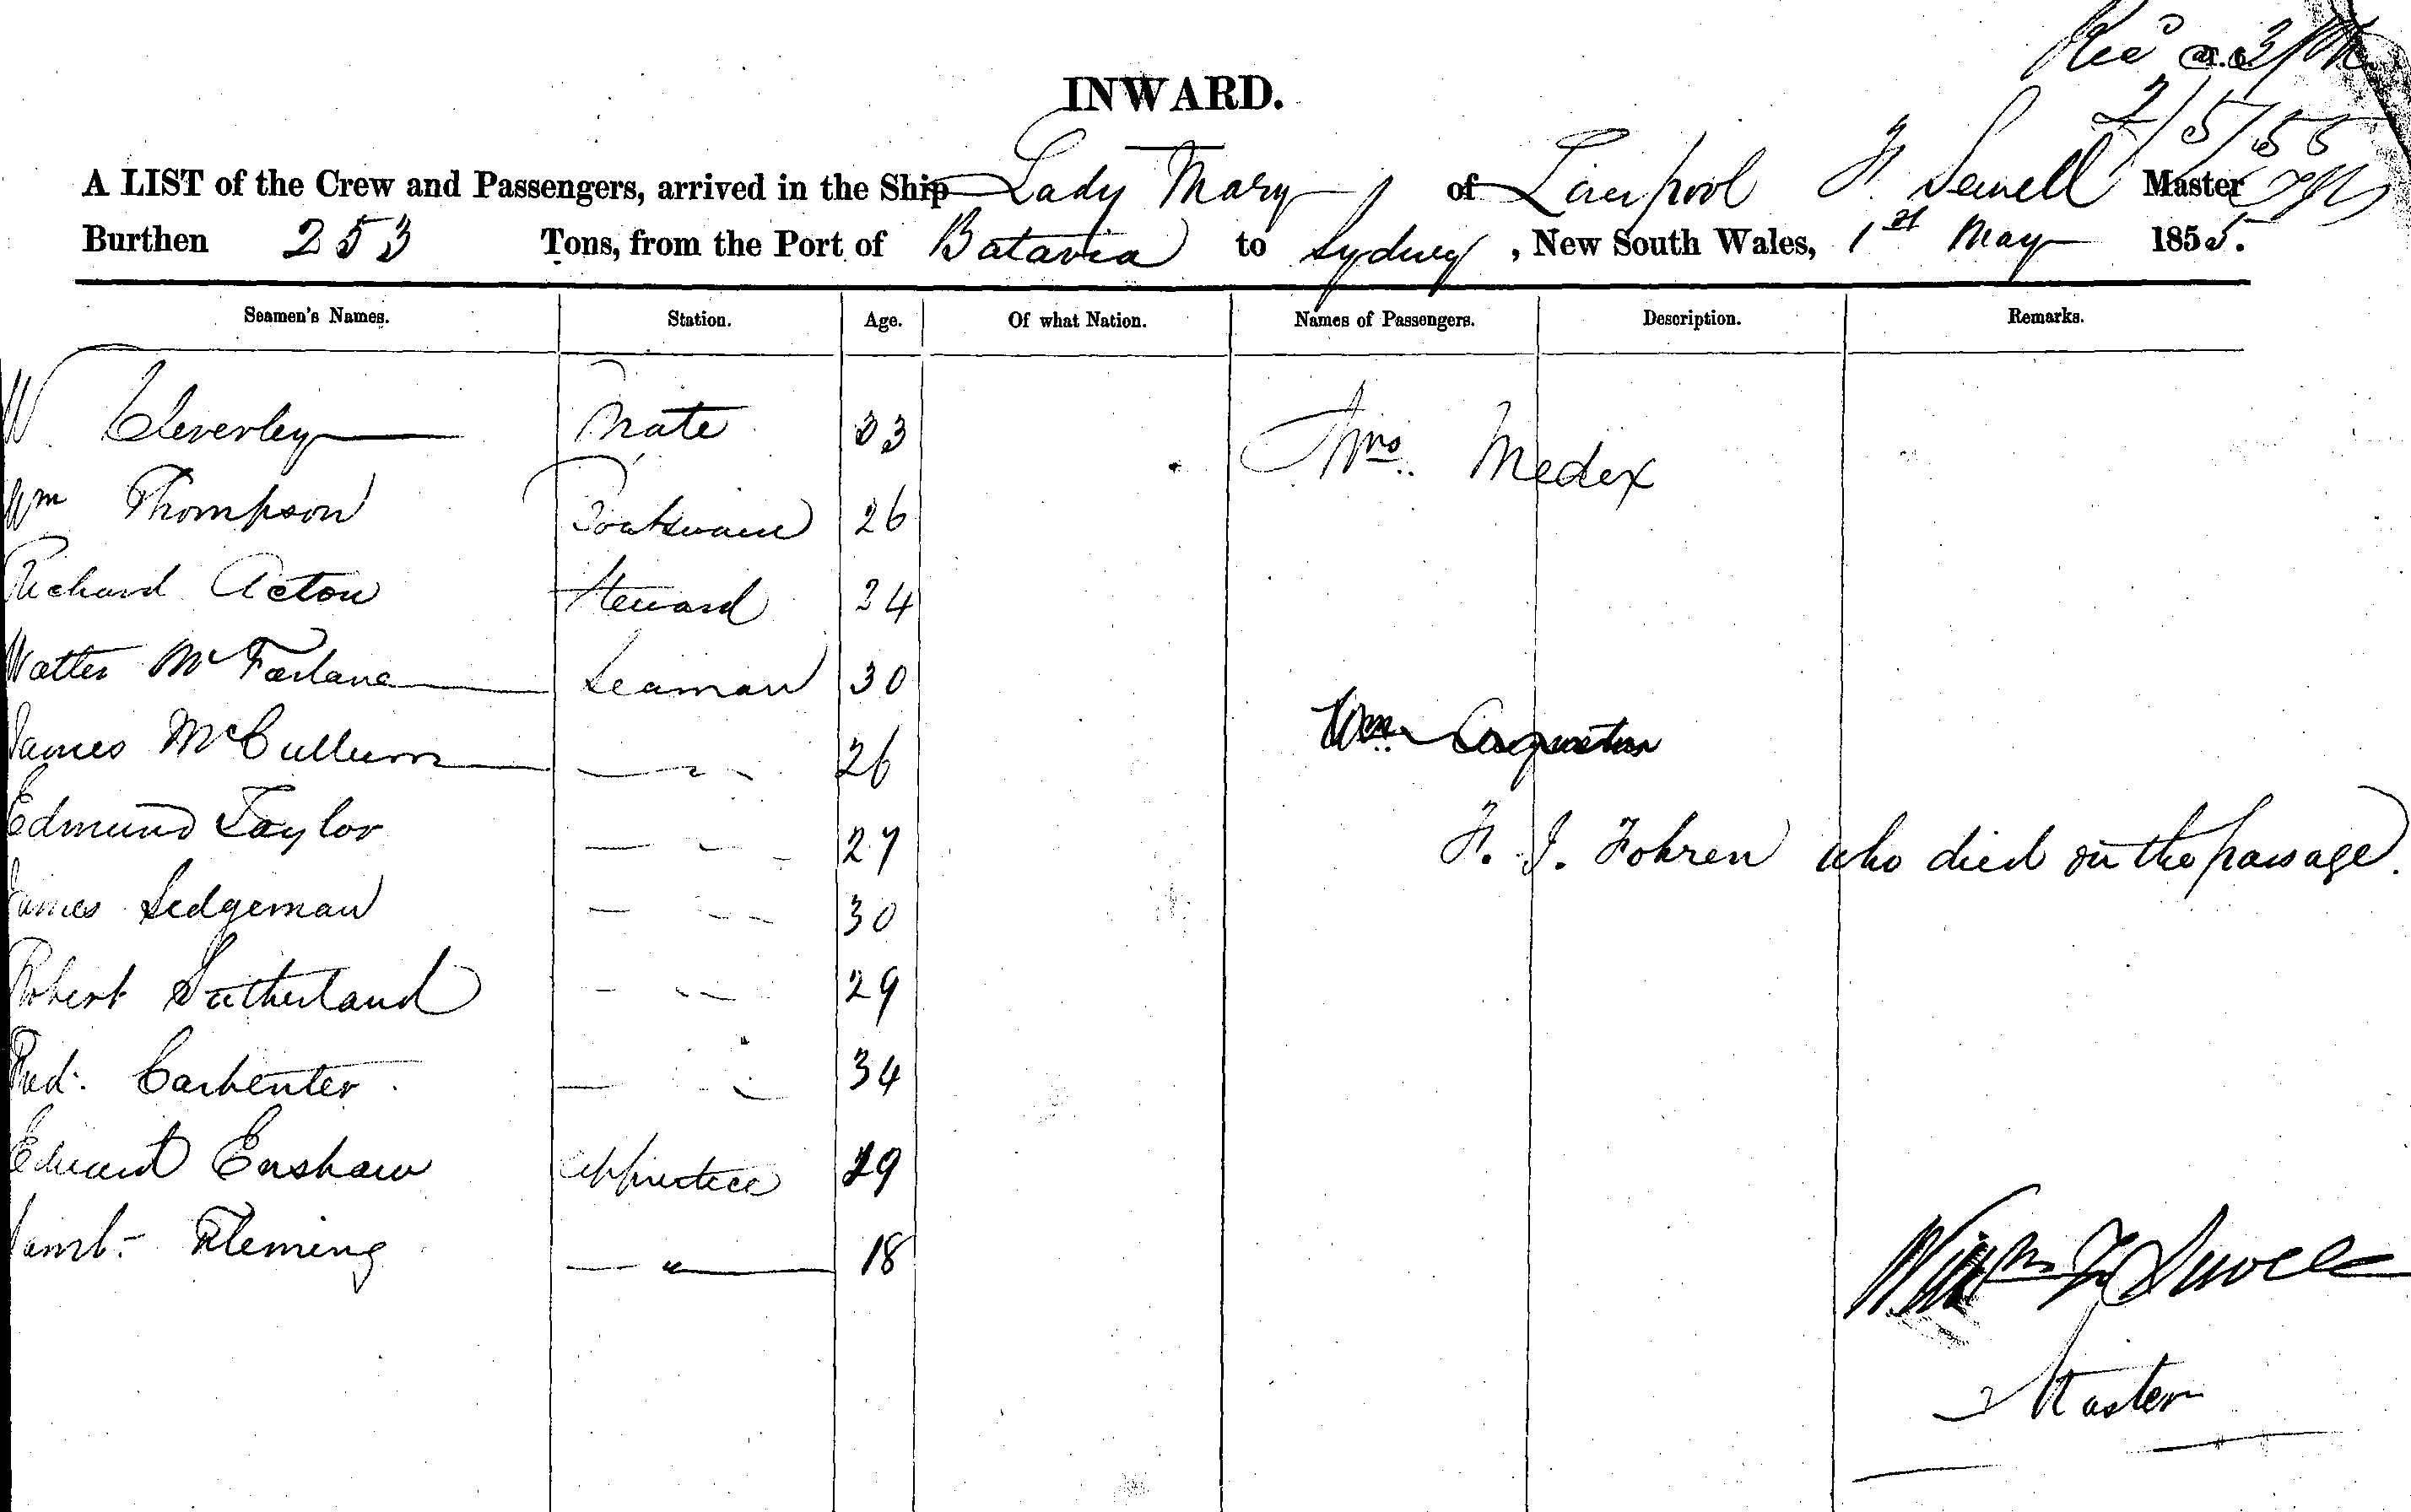 INWARD.
2/5/55
A LIST of the Crew and Passengers, arrived in the Ship Lady Mary of Liverpool Sewell Master
Burthen 253 Tons, from the Port of Batavia to Sydney, New South Wales, 1st May 1855.
Seamen's Names. Station. Age. Of what Nation. Names of Passengers. Description. Remarks.
W. Cleverley Mate 33 Medex
Wm Thompson Boatswain 26
Richard Acton Steward 24
Walter McFarlane Seaman 30
James McCullum 26 Wm
Edmund Taylor 27 J. Fohren who died on the passage.
James Sedgeman 30
Robert Sutherland 29
Fred. Carpenter 34
Edward Enshaw Apprentice 19
Saml. Fleming " 18
Sewell
Master